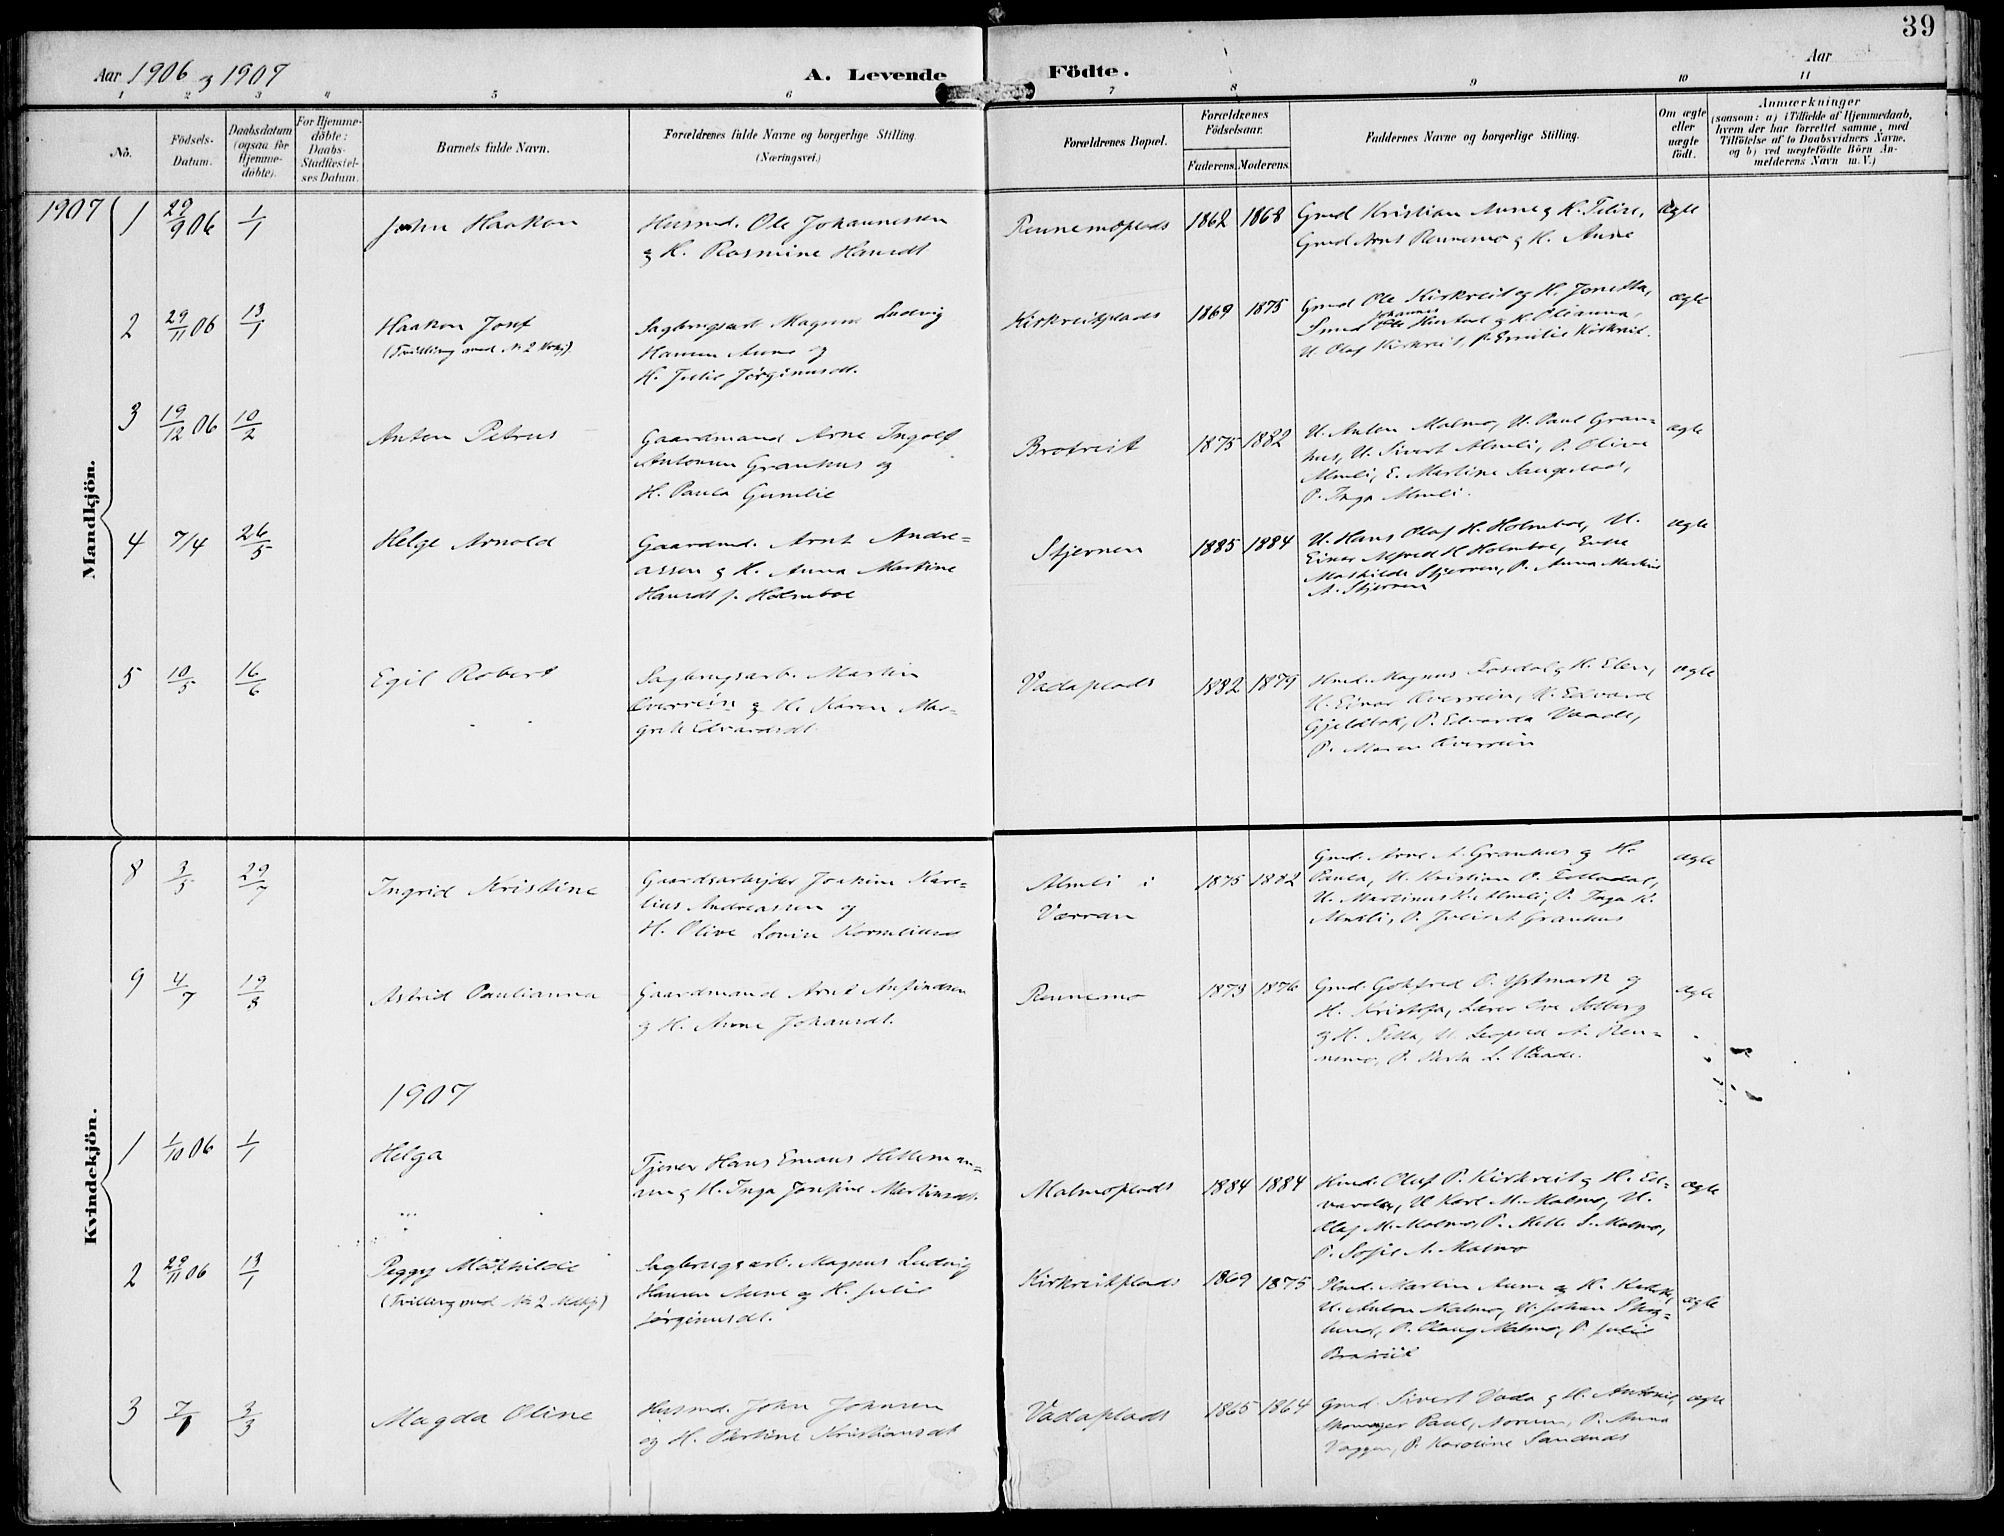 39
Aar 1906 & 1907
A. Levende
Födte.
Aar
1 2 3 4 5 6 7 8 9 10 11
No.
Födsels-
Datum.
Daabsdatum
(ogsaa for
Hjemme-
döbte).
For Hjemme-
döbte:
Daabs-
Stadfæstel-
ses Datum.
Barnets fulde Navn.
Forældrenes fulde Navne og borgerlige Stilling.
(Næringsvei.)
Forældrenes Bopæl.
Forældrenes
Födselsaar.
Faderens. Moderens.
Faddernes Navne og borgerlige Stilling.
Om ægte
eller
uægte
født.
Anmærkninger
(saasom: a) i Tilfælde af Hjemmedaab,
hvem der har forrettet samme, med
Tilföielse af to Daabsvidners Navne.
og b) ved uægtefödte Börn An-
melderens Navn m. V.)
Mandkjön.
1907
1 29/9 06 1/1
John Haakon
Husmd. Ole Johannessen
& H. Rasmine Hansdt
Rennemoplads
1862 1868
Gmd Kristian Aune & H.
Gmd Arnt Rennemo & H. Anne
ægte
2 29/11 06 13/1
Haakon Josef
(Tvilling med No 2 Kvkj)
Sagbrugsarb Magnus Ludvig
Hansen Aune og
H. Julie Jørginusdt.
Kirkreitplads
1869 1875
Gmd Ole Kirkreit og H. Jonetta,
Johannes
H. Olianna,
U. Olaf Kirkreit, P. Emilie Kirkreit.
ægte
3 19/12 06 10/2
Anton Petrus
Gaardmand Arne Ingolf
Antonsen Granhus og
H. Paula Gunelie
Brotreit
1875 1882
U. Anton Malmo, U. Paul Gran-
hus, U. Sivert Almli, P. Olive
Almli, E. Martine
P. Inga Almli.
ægte
4 7/4 26/5
Helge Arnold
Gaardmd. Arnt Andre-
assen & H. Anna Martine
Hansdt f. Holmboe
Stjernen
1885 1884
U. Hans Olaf H. Holmboe, U.
Einar Alfred H Holmboe, Enke
Mathilde Stjernen, P. Anna Martine
A. Stjernen
ægte
5 10/5 16/6
Egil Robert
Sagbrugsarb. Martin
Kverreim & H. Karen Mar-
grete Edvardsdt
Vadaplads
1882 1879
Hmd. Magnus Fosdal & H. Elen,
U. Einar Kverreim, U. Edvard
Gjeldbak, P. Edvarda Vaade,
P. Maren Kverreim
ægte
Kvindekjön.
8 3/5 29/7
Ingrid Kristine
Gaardsarbejder Joakim Kare-
lius Andreassen og
H. Olive Lovise Korneliusd
Almli i
Værran
1875 1882
Gmd. Arne A. Granhus og H.
Paula, U. Kristian P. Folladal,
U. Martinus K. Almli, P. Inga K.
Almli, P. Julie A. Granhus
ægte
9 4/7 19/8
Astrid Paulianna
Gaardmand Arnt Anfindsen
& H. Anne Johansdt.
Rennemo
1873 1876
Gmd. Gotfred P. Ystmark og
H. Kristofa, Lærer Ove Solberg
& H. U. A. Ren-
nemo, P. L. Vaade.
ægte
1907
1 1/10 06 1/1
Helga
Tjener Hans Emans
& H. Inga Josefine Martinsdt.
Malmoplads
1884 1884
Hmd. Oluf P. Kirkreit & H. Ed-
varda, U Karl M. Malmo, U.
Olaf M. Malmo, P. Mette S. Malmo,
P. Sofie A. Malmo
ægte
2 29/11 06 13/1
Peggy Mathilde
(Tvilling med No 2 Mdkj)
Sagbrugsarb. Magnus Ludvig
Hansen Aune og H. Julie
Jørginusdt.
Kirkreitplads
1869 1875
Hmd. Martin Aune og H.
U. Anton Malmo, U. Johan Skog-
lund, P. Olaug Malmo, P. Julie
Bratreit
ægte
3 7/1 3/3
Magda Oline
Husmd. John Johnsen
og H. Bertine Kristiansdt
Vadaplads
1865 1864
Gmd. Sivert Vada & H. Antonie,
Skomager Paul P. Anna
Vaggen, P. Karoline Sandnes
ægte